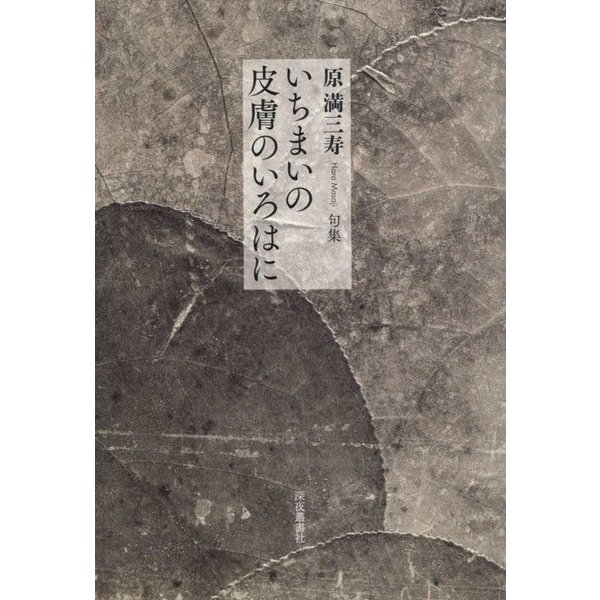 原 満三寿 Hara Masaji 句集
いちまいの
皮膚のいろはに
深夜叢書社